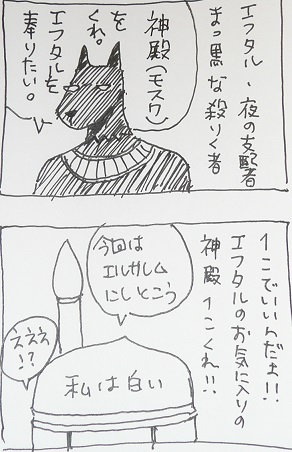 エフタル、夜の支配者
まっ黒な殺りく者
神殿(モスク)
を
くれ。
エフタルを
奉りたい。
1こでいいんだょ!!
エフタルのお気に入りの
神殿 1こくれ!!
今回は
エルサレム
にしとこう
えええ
!?
私は白い